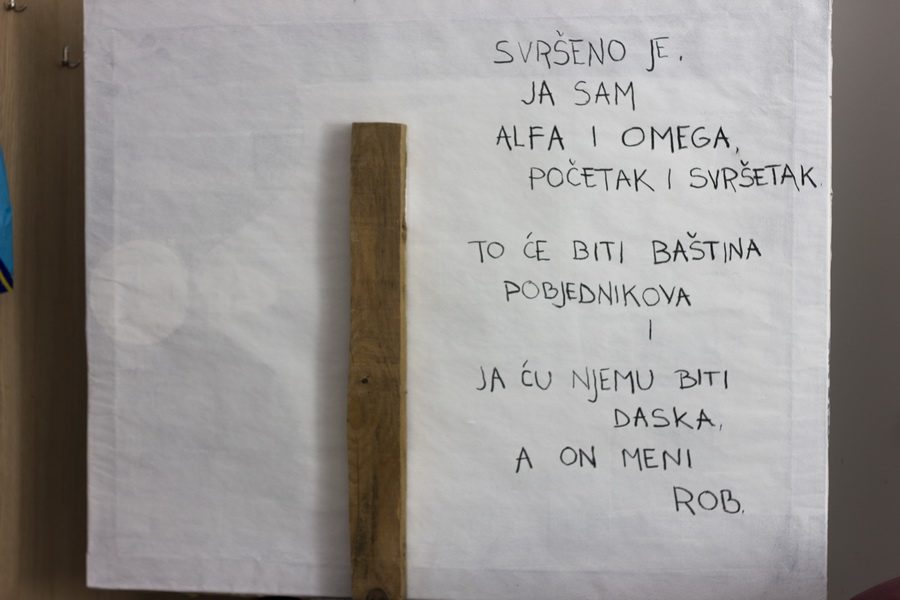 SVRŠENO JE.
JA SAM
ALFA I OMEGA,
POČETAK I SVRŠETAK.
TO ĆE BITI BAŠTINA
POBJEDNIKOVA
I
JA ĆU NJEMU BITI
DASKA,
A ON MENI
ROB.